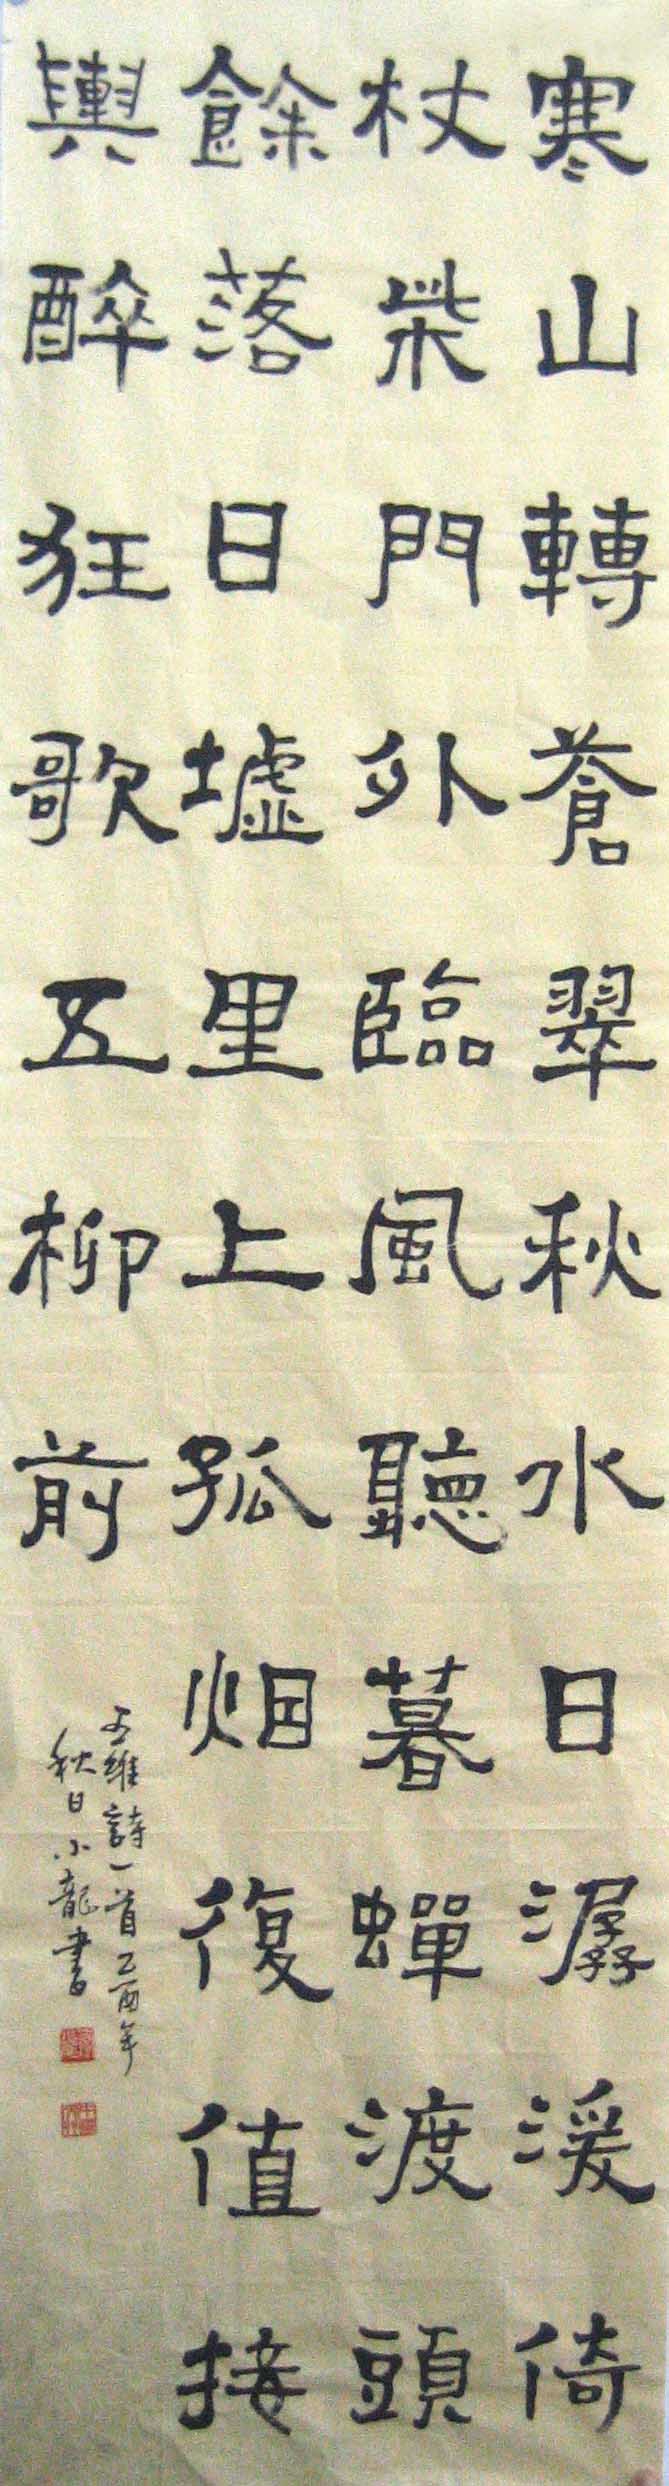 寒山轉蒼翠秋水日潺湲倚
杖柴門外臨風聽暮蟬渡頭
餘落日墟里上孤烟復值接
輿醉狂歌五柳前
王維詩一首乙酉年
秋日小龍書